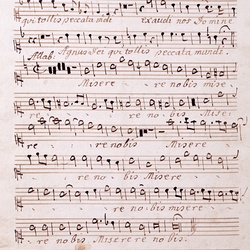 qui tollis peccata mdi exaudi nos Domine
Agnus dei qui tollis peccata mundi.
Miserere nobis mise
re re nobis Mise:
re re nobis Miserere
re nobis Miserere
re nobis miserere
re nobis. Miserere nobis.